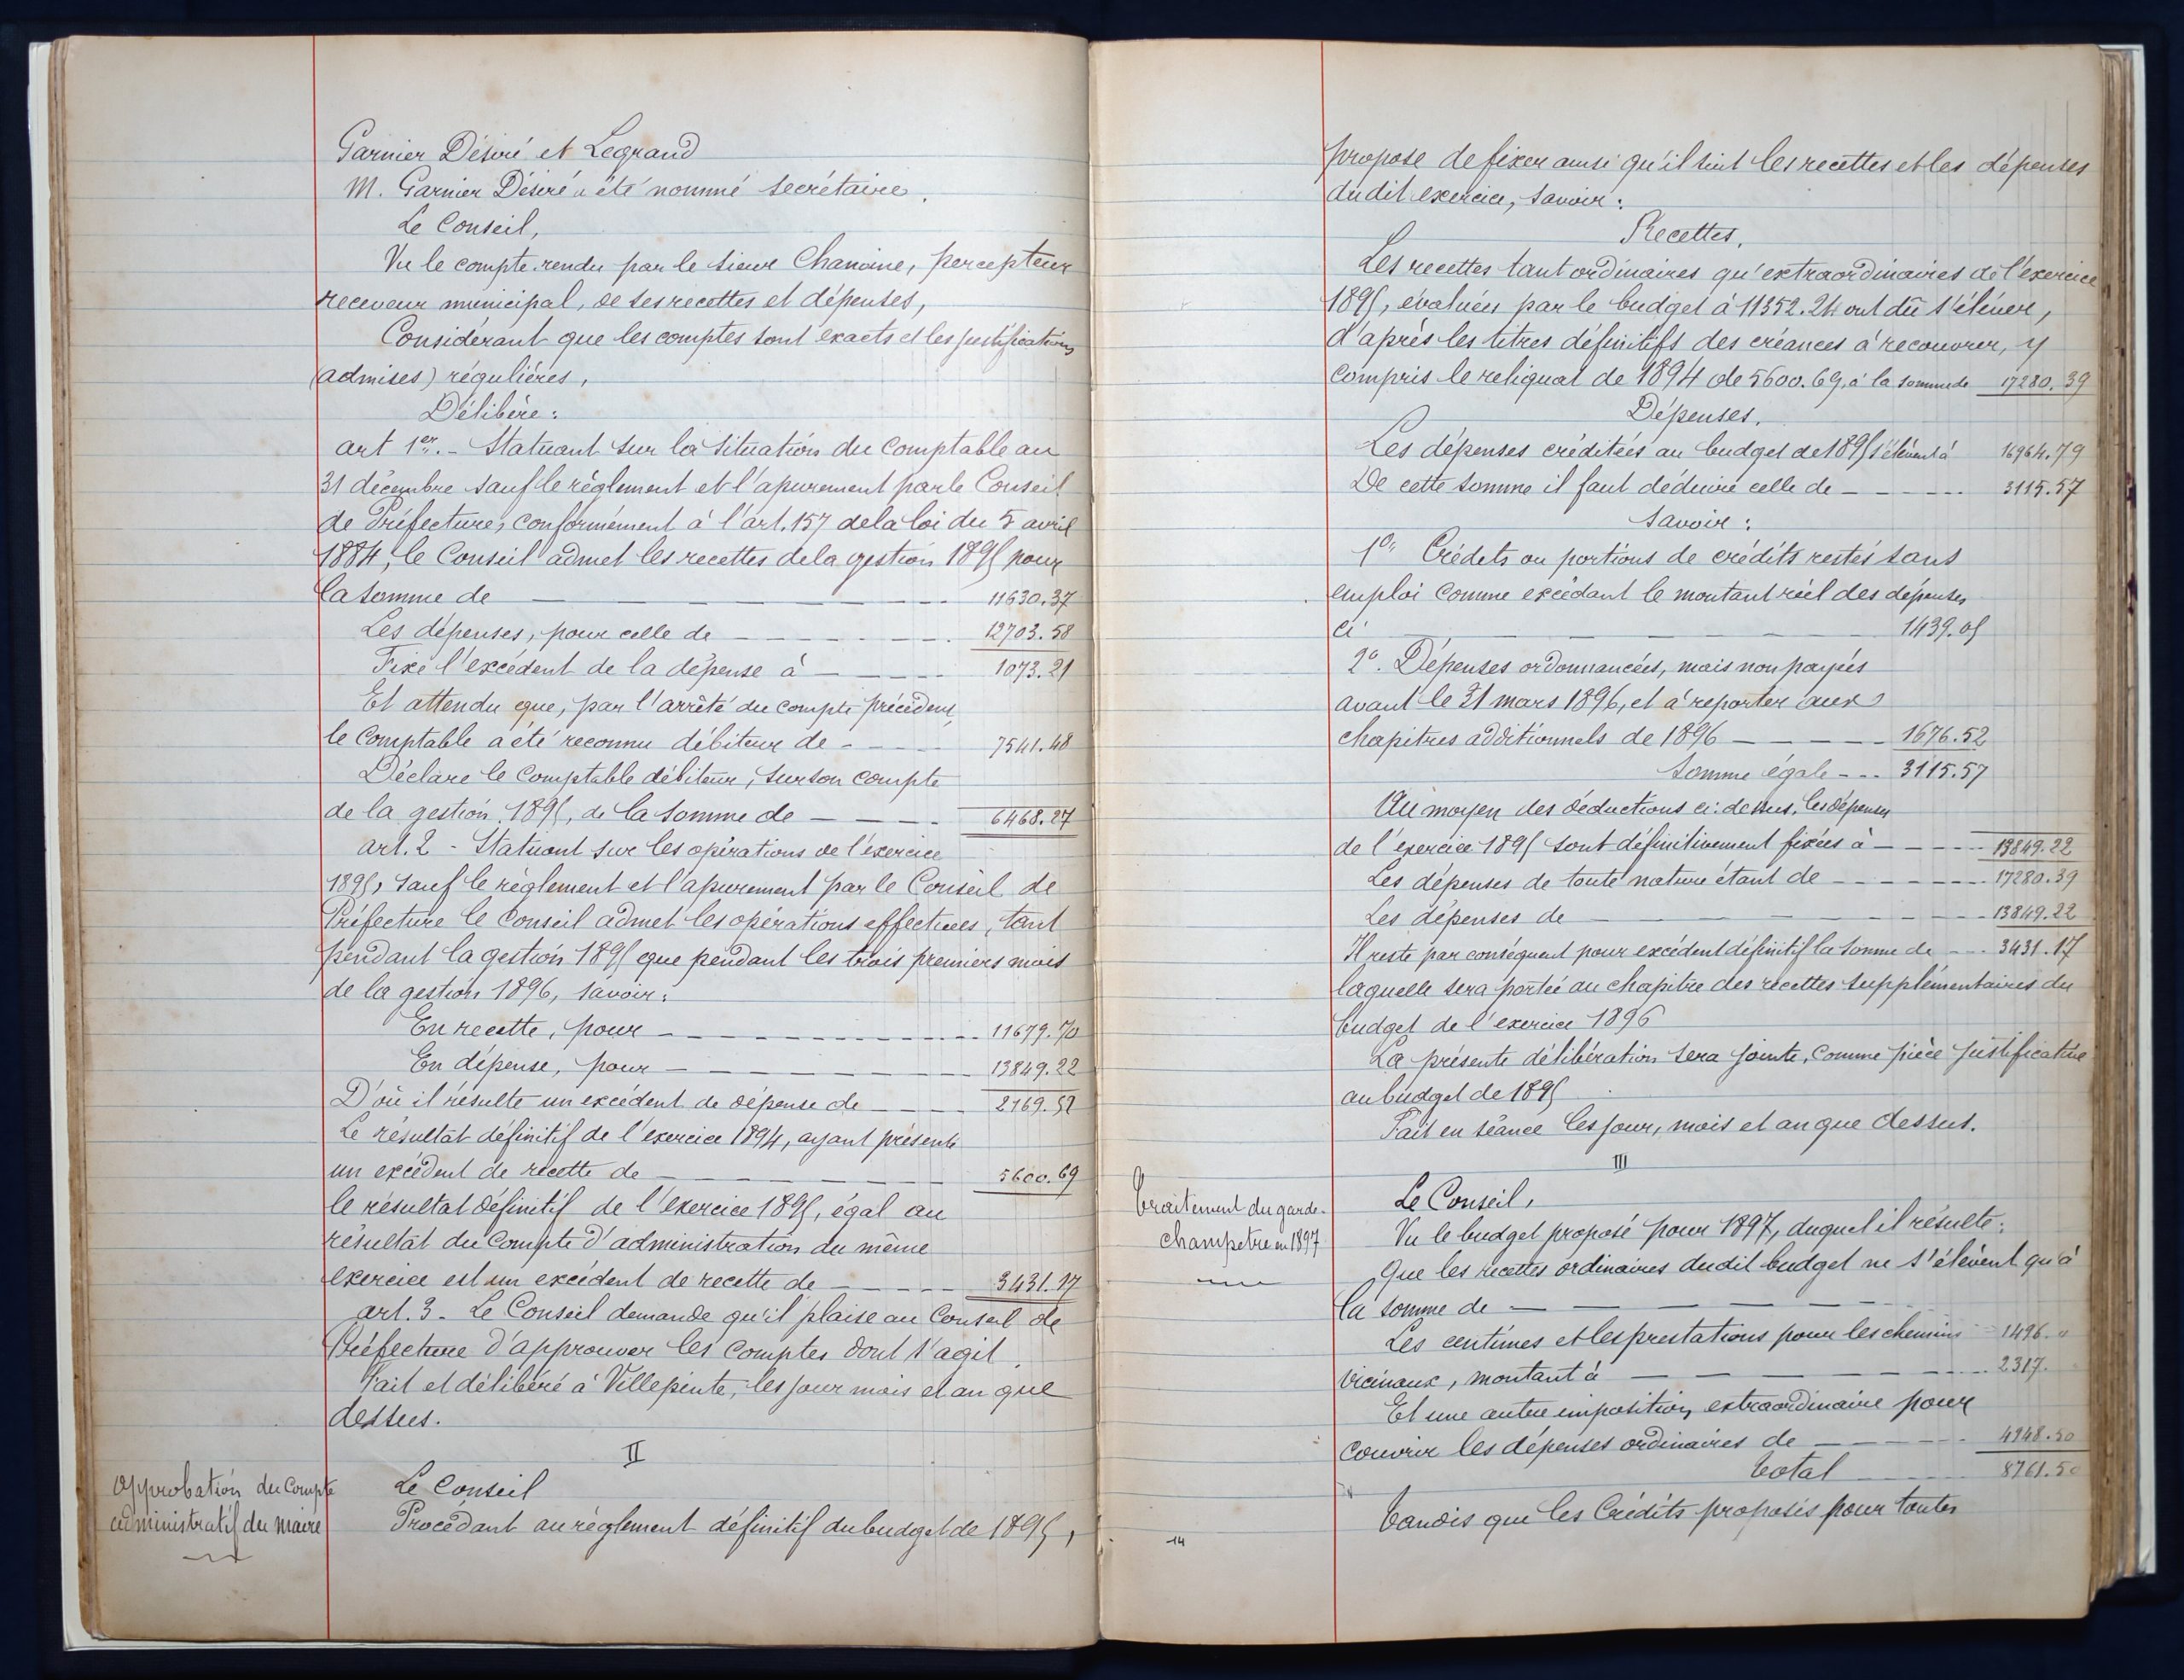 Garnier Désiré et Legrand
M. Garnier Désiré a été nommé secrétaire.
Le Conseil,
Vu le compte rendu par le sieur Chanoine, percepteur
receveur municipal, de ses recettes et dépenses,
Considérant que les comptes sont exacts et les justifications
(admises) régulières,
Délibère:
art 1er. - Statuant sur la situation du Comptable au
31 décembre sauf le règlement et l'apurement par le Conseil
de Préfecture, conformément à l'art. 157 de la loi du 5 avril
1884, le Conseil admet les recettes de la gestion 1895 pour
la somme de 11630.37
Les dépenses, pour celle de 12703.58
Fixe l'excédent de la dépense à 1073.21
Et attendu que, par l'arrêté du compte précédent
le Comptable a été reconnu débiteur de 7541.48
Déclare le Comptable débiteur, sur son compte
de la gestion 1895, de la somme de 6468.27
art. 2 - Statuant sur les opérations de l'exercice
1895, sauf le règlement et l'apurement par le Conseil de
Préfecture le Conseil admet les opérations effectuées, tant
pendant la gestion 1895 que pendant les trois premiers mois
de la gestion 1896, savoir:
En recette, pour 11679.70
En dépense, pour 13849.22
D'où il résulte un excédent de dépense de 2169.52
Le résultat définitif de l'exercice 1894, ayant présenté
un excédent de recette de 5600.69
le résultat définitif de l'exercice 1895, égal au
résultat du Compte d'administration du même
exercice est un excédent de recette de 3431.17
art. 3 - Le Conseil demande qu'il plaise au Conseil de
Préfecture d'approuver les comptes dont s'agit.
Fait et délibéré à Villepinte, les jour mois et an que
dessus.
II
Approbation du Compte
administratif du maire
Le Conseil
Procédant au règlement définitif du budget de 1895,
propose de fixer ainsi qu'il suit les recettes et les dépenses
dudit exercice, savoir:
Recettes.
Les recettes tant ordinaires qu'extraordinaires de l'exercice
1895, évaluées par le budget à 11352.24 ont dû s'élever,
d'après les titres définitifs des créances à recouvrer, y
compris le reliquat de 1894 de 5600.69, à la somme de 17280.39
Dépenses.
Les dépenses créditées au budget de 1895 s'élèvent à 16964.79
De cette somme il faut déduire celle de 3115.57
Savoir:
1° Crédits ou portions de crédits restés sans
emploi comme excédant le montant réel des dépenses
ci 1439.05
2°. Dépenses ordonnancées, mais non payées
avant le 31 mars 1896, et à reporter aux
chapitres additionnels de 1896 1676.52
Somme égale 3115.57
Au moyen des déductions ci-dessus, les dépenses
de l'exercice 1895 sont définitivement fixées à 13849.22
Les dépenses de toute nature étant de 17280.39
Les dépenses de 13849.22
Il reste par conséquent pour excédent définitif la somme de 3431.17
laquelle sera portée au chapitre des recettes supplémentaires du
budget de l'exercice 1896
La présente délibération sera jointe, comme pièce justificative
au budget de 1895
Fait en séance les jour, mois et an que dessus.
III
Traitement du garde-
champetre en 1897
Le Conseil,
Vu le budget proposé pour 1897, duquel il résulte:
Que les recettes ordinaires dudit budget ne s'élèvent qu'à
la somme de
Les centimes et les prestations pour les chemins 1496.
vicinaux, montant à 2317.
Et une autre imposition extraordinaire pour
couvrir les dépenses ordinaires de 4948.50
Total 8761.50
Tandis que les Crédits proposés pour toutes
14